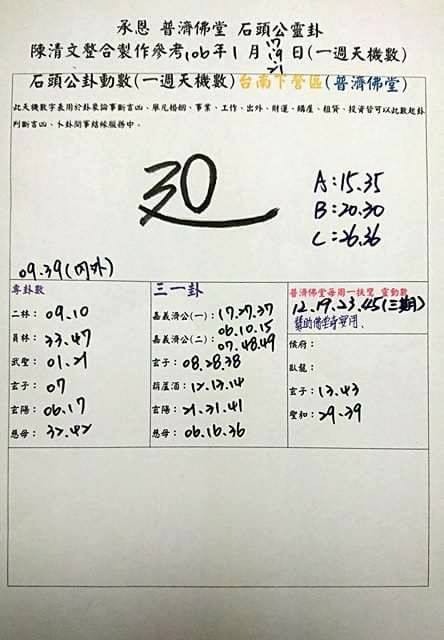 承恩 普濟佛堂 石頭公靈卦
陳清文整合製作參考106年1月17.19.21日(一週天機數)
石頭公卦動數(一週天機數)台南下營區(普濟佛堂)
此天機數字表用於卦象論事斷吉凶、舉凡婚姻、事業、工作、出外、財運、購屋、租賃、投資皆可以此數起卦
判斷吉凶、卜卦問事結緣服務中。
30
A:15.35
B:20.30
C:26.36
09.39(內外)
專卦數
二林:09.10
員林:33.47
武聖:01.21
玄子:07
玄陽:06.17
慈母:32.42
三一卦
嘉義濟公(一):17.27.37
嘉義濟公(二):06.10.15
07.48.49
玄子:08.28.38
葫蘆酒:12.13.14
玄陽:21.31.41
慈母:06.16.36
普濟佛堂每周一扶鸞 靈動數
12.19.23.45(三期)
贊助佛堂等費用.
候府:
臥龍:
玄子:13.43
聖和:29.39